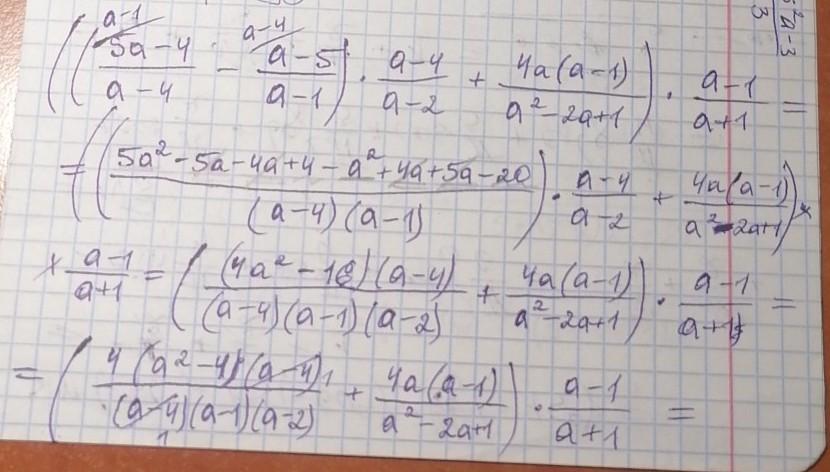 ((5a-4/a-4 - a-5/a-1) · a-4/a-2 + 4a(a-1)/a²-2a+1) · a-1/a+1 =
= ((5a²-5a-4a+4-a²+4a+5a-20/(a-4)(a-1)) · a-4/a-2 + 4a(a-1)/a²-2a+1) ×
× a-1/a+1 = ((4a²-16)(a-4)/(a-4)(a-1)(a-2) + 4a(a-1)/a²-2a+1) · a-1/a+1 =
= (4(a²-4)(a-4)/(a-4)(a-1)(a-2) + 4a(a-1)/a²-2a+1) · a-1/a+1 =